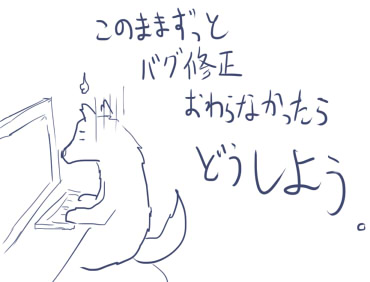 このままずっと
バグ修正
おわらなかったら
どうしよう。